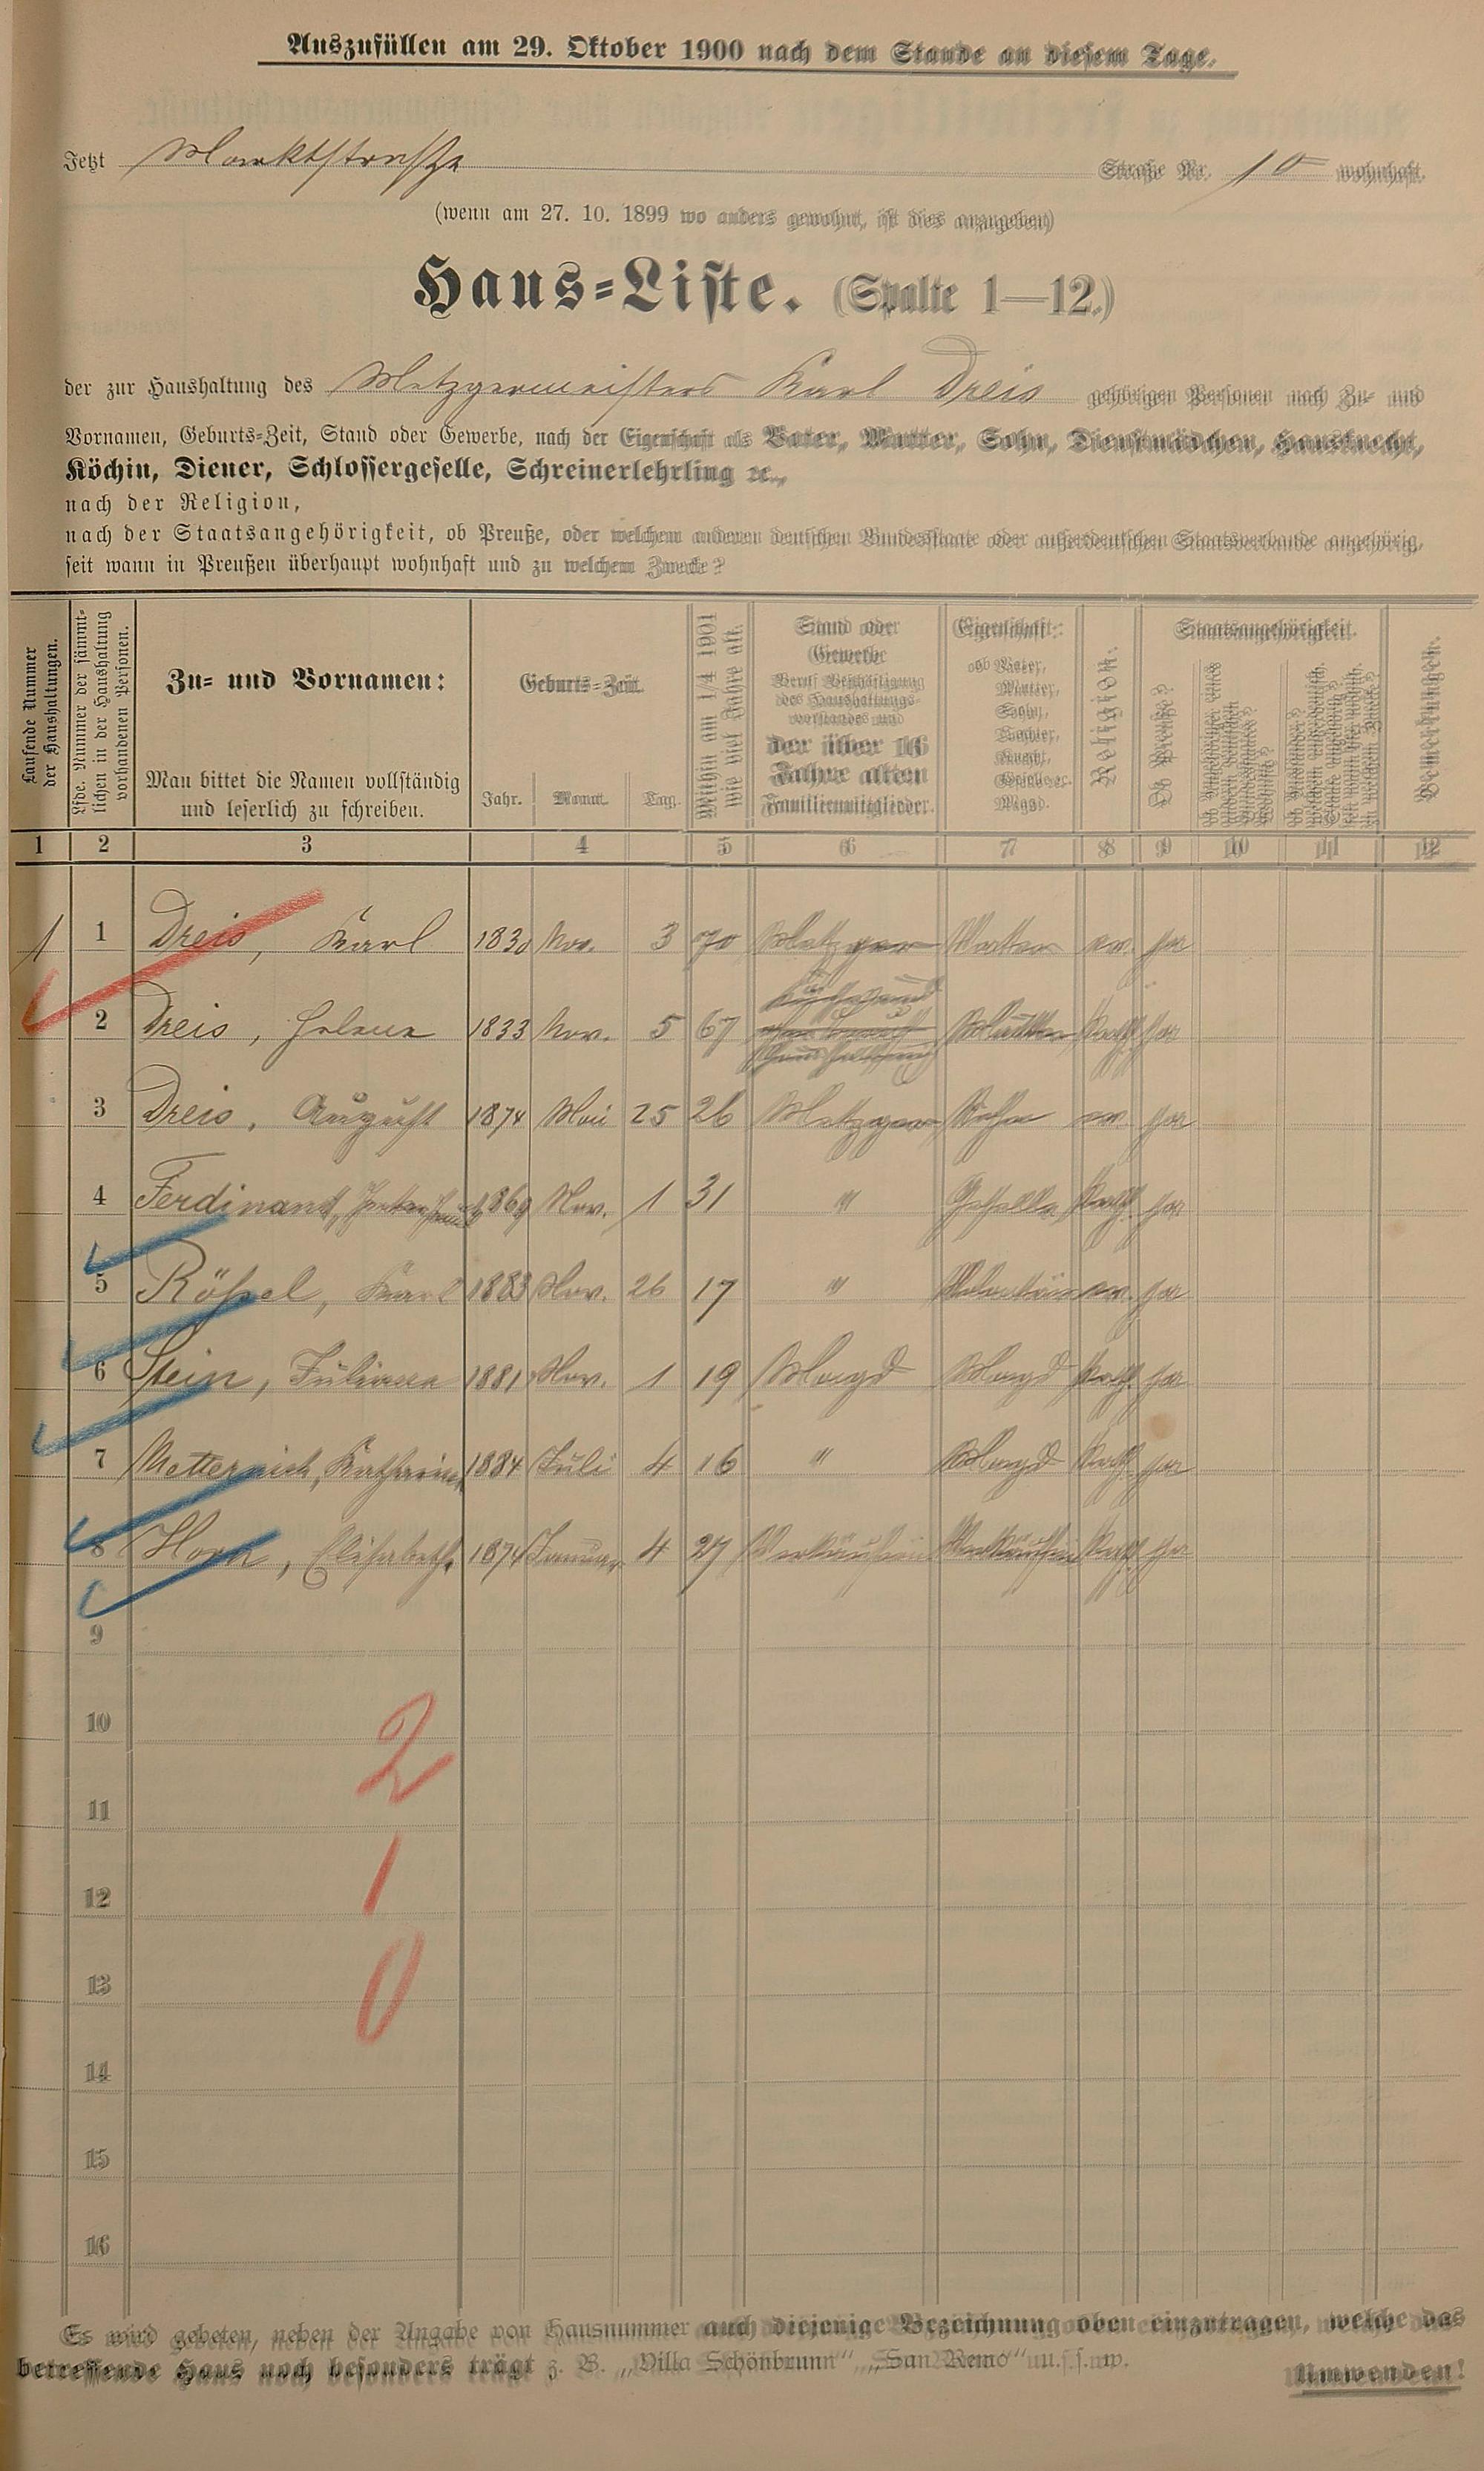 Auszufüllen am 29. Oktober 1900 nach dem Stande an diesem Tage.
Jetzt Marktstraße Straße Nr. 10 wohnhaft.
(wenn am 27. 10. 1899 wo anders gewohnt, ist dies anzugeben)
Haus-Liste. (Spalte 1—12.)
der zur Haushaltung des Metzgermeisters Karl Dreis gehörigen Personen nach Zu- und
Vornamen, Geburts-Zeit, Stand oder Gewerbe, nach der Eigenschaft als Vater, Mutter, Sohn, Dienstmädchen, Hausknecht,
Köchin, Diener, Schlossergeselle, Schreinerlehrling ꝛc.,
nach der Religion,
nach der Staatsangehörigkeit, ob Preuße, oder welchem anderen deutschen Bundesstaate oder außerdeutschen Staatsverbande angehörig,
seit wann in Preußen überhaupt wohnhaft und zu welchem Zwecke?
Laufende Nummer der Haushaltungen.
Lfde. Nummer der sämmtlichen in der Haushaltung vorhandenen Personen.
Zu- und Vornamen:
Man bittet die Namen vollständig
und leserlich zu schreiben.
Geburts-Zeit.
Jahr. Monat. Tag.
Mithin am 1/4 1901 wie viel Jahre alt.
Stand oder
Gewerbe
Beruf Beschäftigung
des Haushaltungs-
vorstandes und
der über 16
Jahre alten
Familienmitglieder.
Eigenschaft:
ob Vater,
Mutter,
Sohn,
Tochter,
Knecht,
Geselle ꝛc.
Magd.
Religion.
Staatsangehörigkeit.
Ob Preuße?
Bemerkungen.
1 2 3 4 5 6 7 8 9 10 11 12
1 1 Dreis, Karl 1830 Nov. 3 70 Metzger Vatter ev. ja
2 Dreis, Helene 1833 Nov. 5 67 Mutter Kath. ja
3 Dreis, August 1874 Mai 25 26 Metzger Sohn ev. ja
4 Ferdinand, 1869 Nov. 1 31 " Geselle Kath. ja
5 Rößel, Karl 1883 Nov. 26 17 " Volontär ev. ja
6 Stein, Juliana 1881 Nov. 1 19 Magd Magd Kath. ja
7 Metternich, Katharina 1884 Juli 4 16 " Magd Kath. ja
8 Horn, Elisabeth 1874 Januar 4 27 Verkäuferin Verkäuferin Kath. ja
9
10
2
11
12
1
13
0
14
15
16
Es wird gebeten, neben der Angabe von Hausnummer auch diejenige Bezeichnung oben einzutragen, welche das
betreffende Haus noch besonders trägt z. B. „Villa Schönbrunn" „San Remo" u. s. w.
Umwenden!